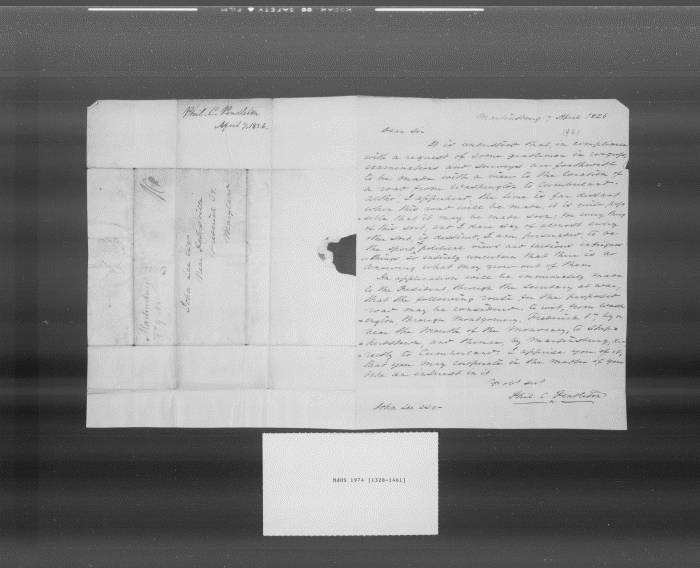 KODAK SAFETY FILM
Phil. C. Pendleton
April 7, 1826.
John Lee esqr
Near
Frederick Co.
Maryland
Martinsburg 7 April 1826
1961
Dear Sir
It is understood that, in compliance
with a request of some gentlemen in congress,
examinations and surveys are forthwith
to be made with a view to the location of
a road from Washington to Cumberland.
altho' I apprehend the time is far distant
when this road will be made, it is quite pos-
sible that it may be made soon; for every thing
of this sort, and I dare say of almost every
other sort, is distinct, I am persuaded to be
the sport political views and
things so entirely uncertain that there is no
knowing what may grow out of them.
An application will be immediately made
to the President through the Secretary at war,
that the following route for the proposed
road may be considered. to wit, from Wash-
ington through Montgomery, Frederick by or
near the Mouth of the Monocacy, to Shep-
herdstown, and thence, by Martinsburg, di-
rectly to Cumberland. I apprise you of it,
that you may cooperate in the matter if you
take an interest in it.
Yr obt svt
Phil C. Pendleton
John Lee esqr
MdHS 1974 [1328-1461]